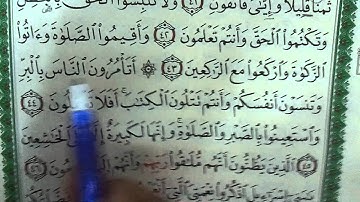 ثَمَنًا قَلِيلًا وَإِيَّٰيَ فَٱتَّقُونِ ٤١ وَلَا تَلْبِسُوا۟ ٱلْحَقَّ
وَتَكْتُمُوا۟ ٱلْحَقَّ وَأَنتُمْ تَعْلَمُونَ ٤٢ وَأَقِيمُوا۟ ٱلصَّلَوٰةَ وَءَاتُوا۟
ٱلزَّكَوٰةَ وَٱرْكَعُوا۟ مَعَ ٱلرَّٰكِعِينَ ٤٣ ۞ أَتَأْمُرُونَ ٱلنَّاسَ بِٱلْبِرِّ
وَتَنسَوْنَ أَنفُسَكُمْ وَأَنتُمْ تَتْلُونَ ٱلْكِتَٰبَ أَفَلَا ٤٤
وَٱسْتَعِينُوا۟ بِٱلصَّبْرِ وَٱلصَّلَوٰةِ وَإِنَّهَا لَكَبِيرَةٌ ٱلْخَٰشِعِينَ
٤٥ ٱلَّذِينَ يَظُنُّونَ أَنَّهُم مُّلَٰقُوا۟ رَبِّهِمْ وَأَنَّهُمْ ٤٦
إِسْرَٰٓءِيلَ ٱذْكُرُوا۟ نِعْمَتِىَ ٱلَّتِىٓ